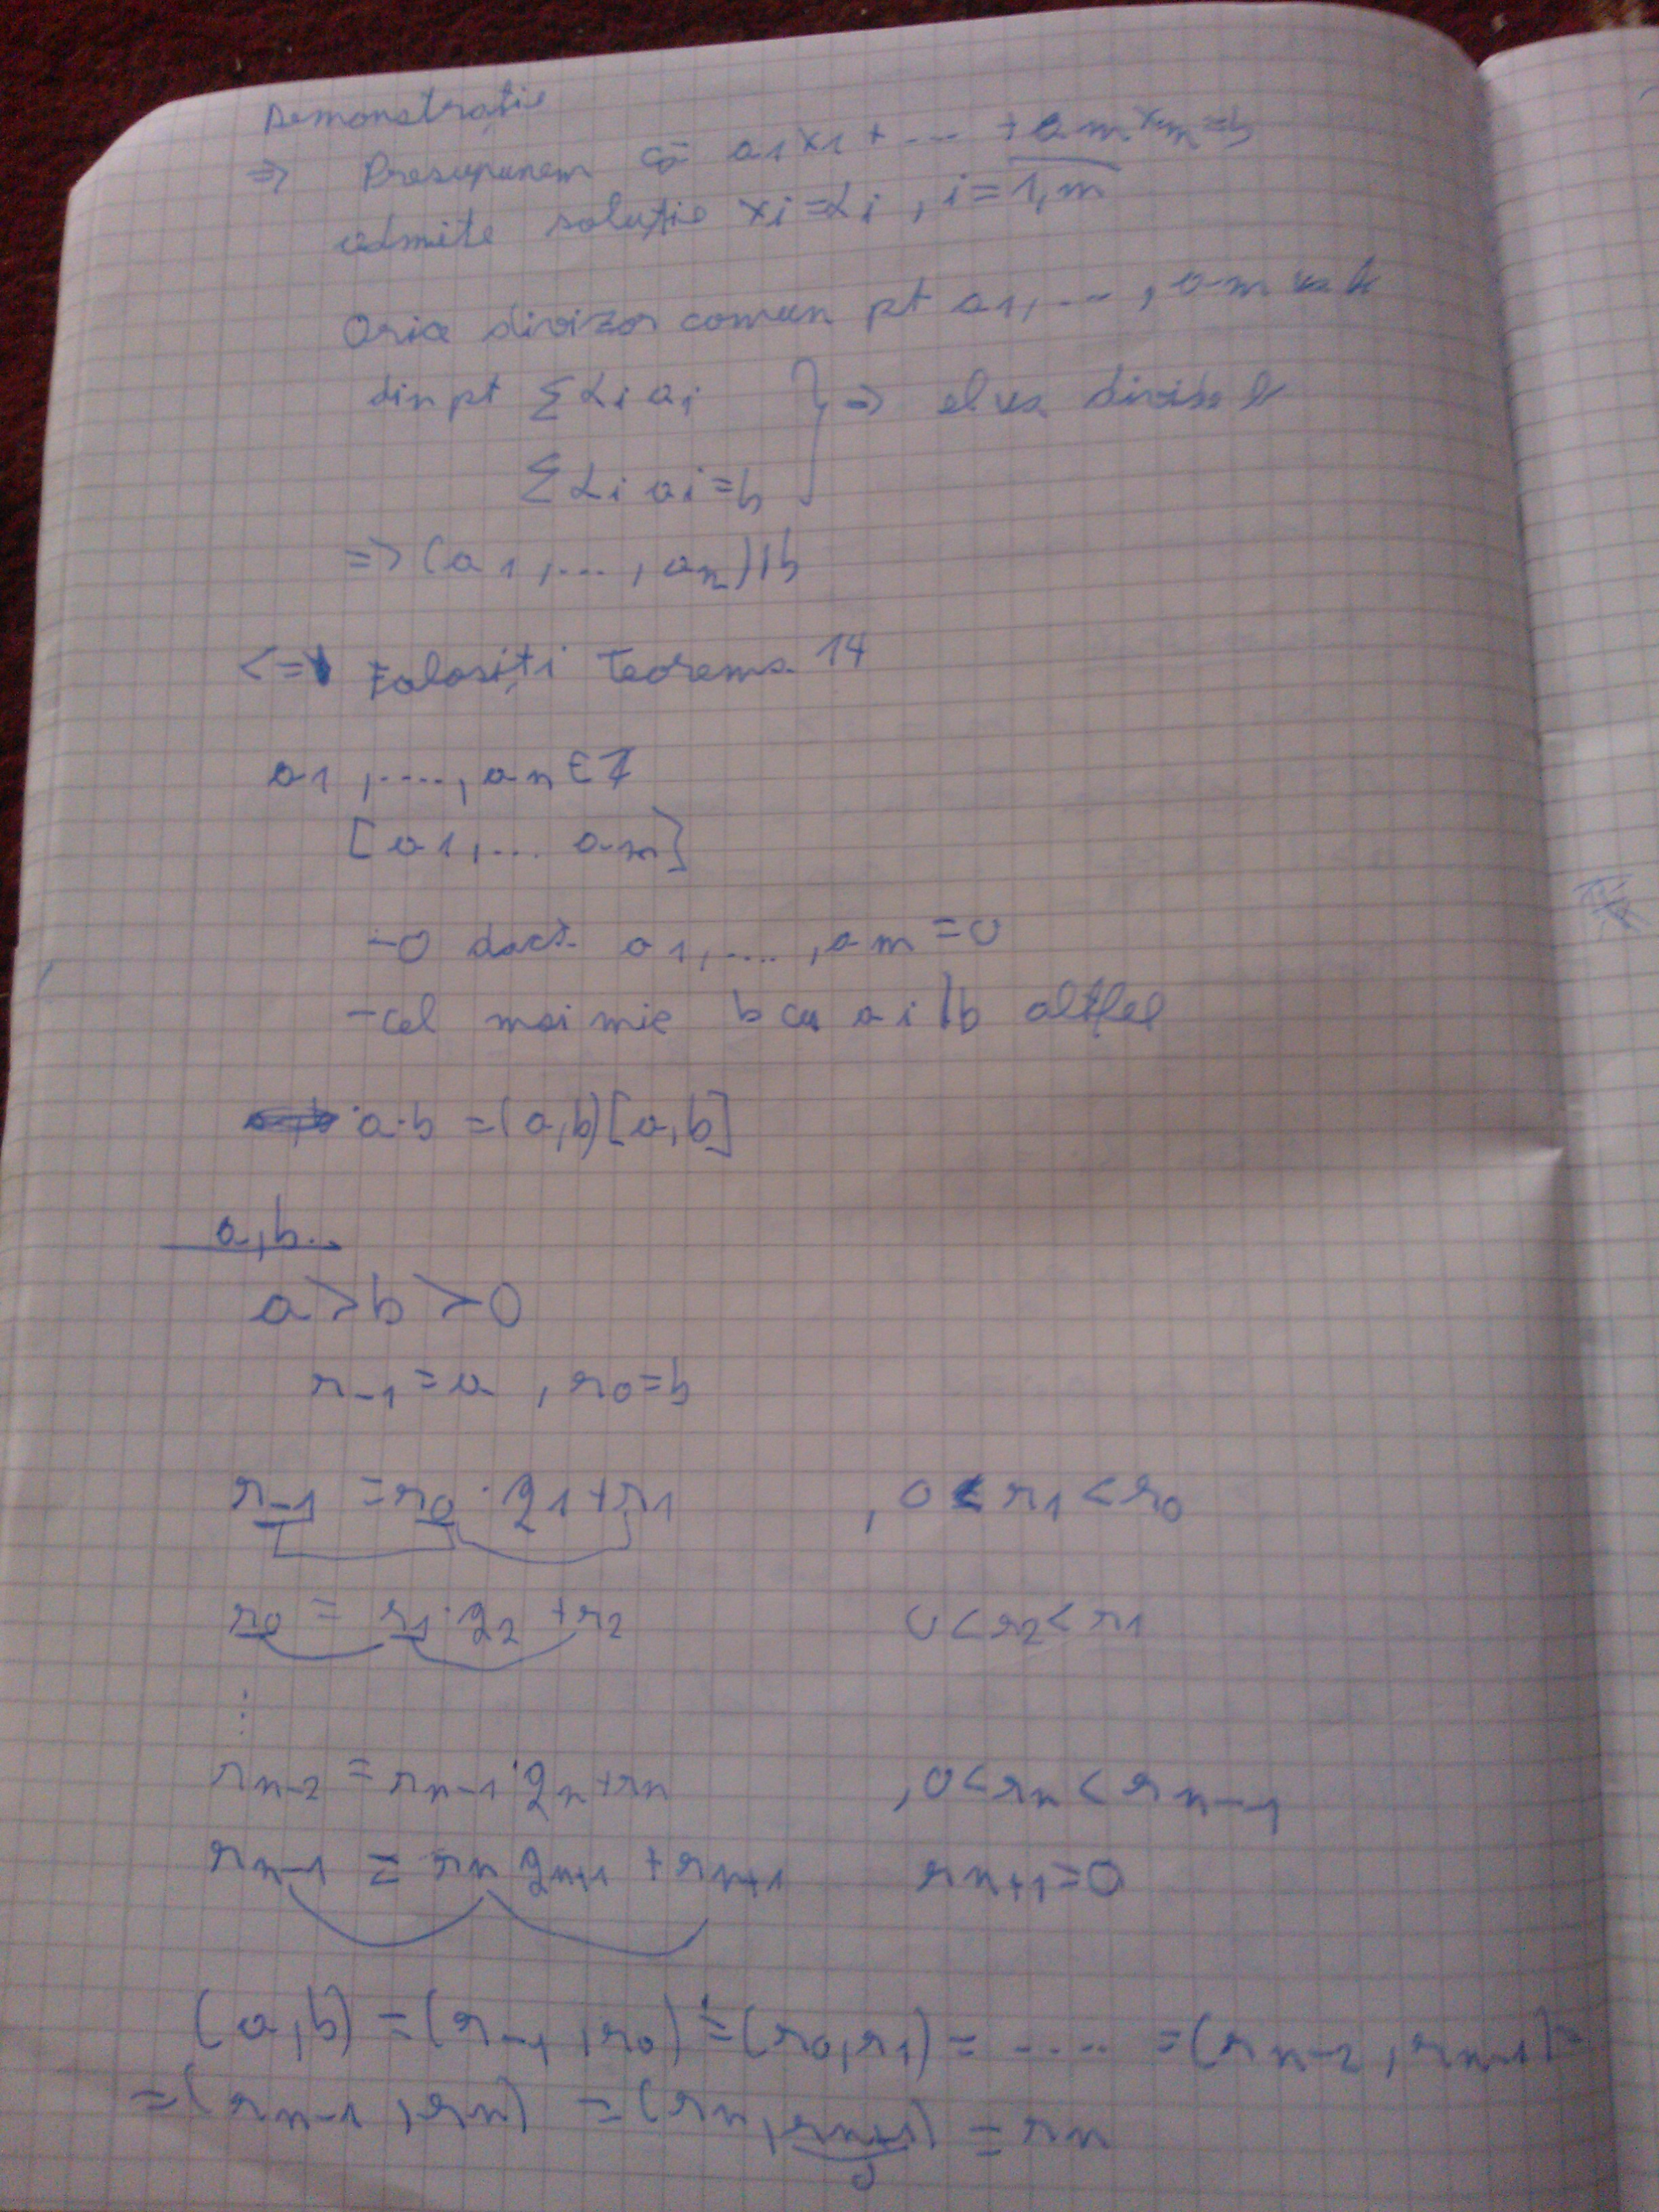 Demonstrație
=> Presupunem că a1x1+ ... +am.xm=b
admite soluție xi=αi , i=1,m
Orice divizor comun pt a1,... ,am va fi
din pt Σαiai } => el va divide b
Σαiai=b
=> (a1,...,an)|b
<= Folosiți teorema 14
a1,....,an∈Z
[a1,... am]
-0 dacă a1,....,am=0
-cel mai mic b cu ai|b altfel
a·b =(a,b)[a,b]
a,b..
a>b>0
r-1=a , r0=b
r-1 =r0·q1+r1 , 0<r1<r0
r0 = r1·q2+r2 0<r2<r1
⋮
rn-2=rn-1·qn+rn ,0<rn<rn-1
rn-1 = rn qn+1 +rn+1 rn+1=0
(a,b)=(r-1,r0)=(r0,r1)= .... =(rn-2,rn-1)=
=(rn-1,rn) =(rn,rn+1) =rn
0